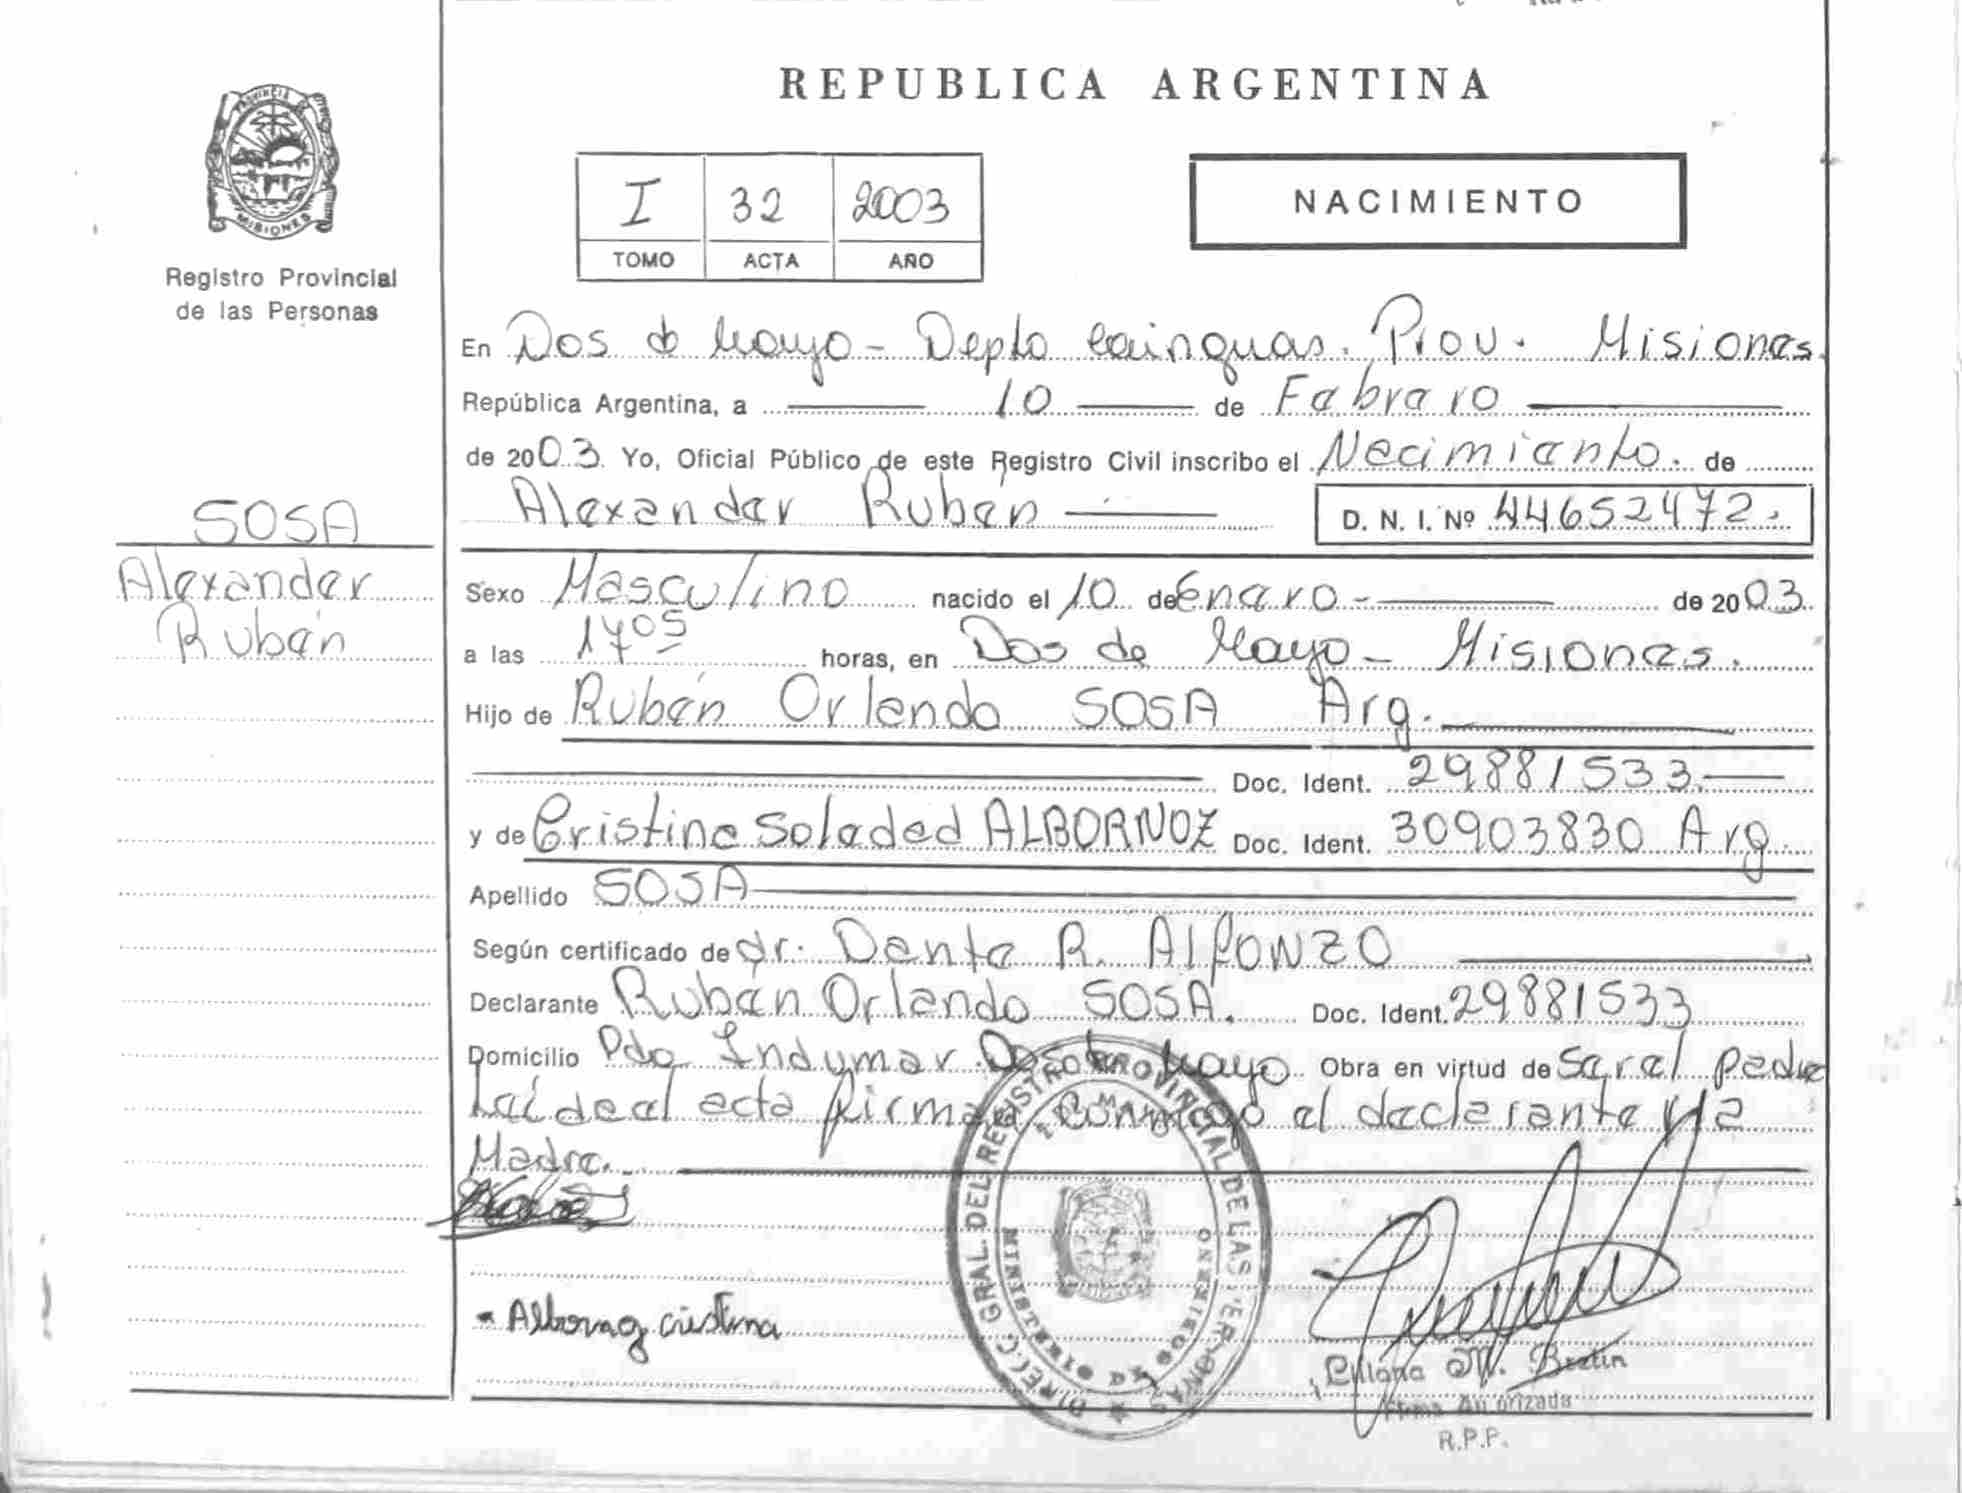 REPUBLICA ARGENTINA
PROVINCIA DE
MISIONES
Registro Provincial
de las Personas
I 32 2003
TOMO ACTA AÑO
NACIMIENTO
En Dos de Mayo - Depto Cainguas. Prov. Misiones.
República Argentina, a 10 de Febrero
de 2003. Yo, Oficial Público de este Registro Civil inscribo el Nacimiento. de
Alexander Rubén D. N. I. Nº 44652472.
SOSA
Alexander
Rubén
Sexo Masculino nacido el 10 de Enero - de 2003
a las 1405 horas, en Dos de Mayo - Misiones.
Hijo de Rubén Orlando SOSA Arg.
Doc. Ident. 29881533.
y de Cristina Soledad ALBORNOZ Doc. Ident. 30903830 Arg.
Apellido SOSA
Según certificado de dr. Dante R. Alfonzo
Declarante Rubén Orlando SOSA. Doc. Ident. 29881533
Domicilio Pdo Indumar Dos de Mayo Obra en virtud de ser el padre
Leída el acta firma conmigo el declarante y la
Madre.
- Albornoz cristina
DIREC. GRAL. DEL REGISTRO PROVINCIAL DE LAS PERSONAS
Liliana M. Bretin
Firma Autorizada
R.P.P.